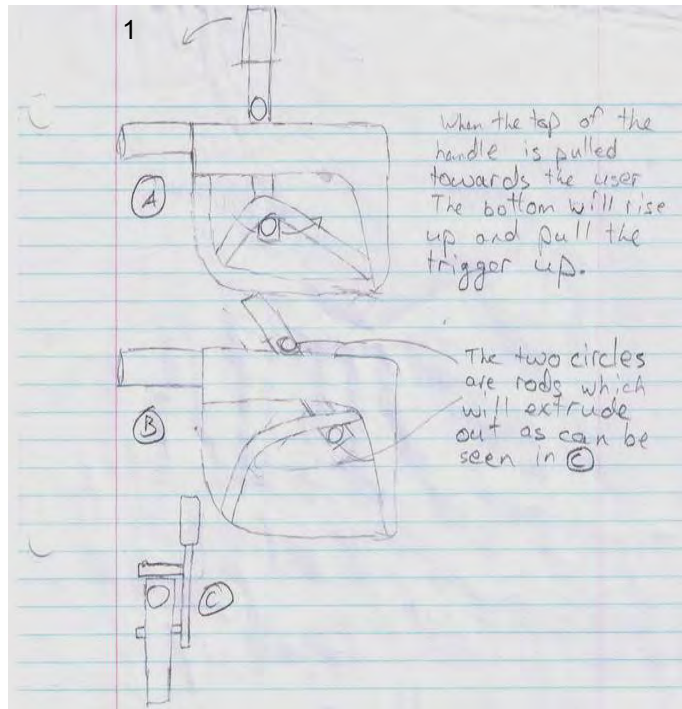 1
When the top of the
handle is pulled
towards the user
The bottom will rise
up and pull the
trigger up.
A
The two circles
are rods which
will extrude
out as can be
seen in C
B
C